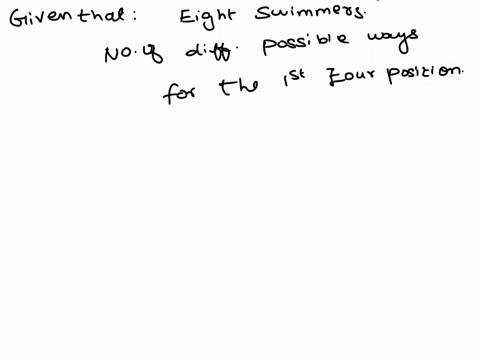 Given that: Eight Swimmers.
No. of diff. possible ways
for the 1st Four position.